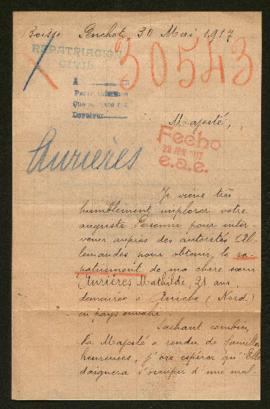 Penchot, 30 Mai, 1917
REPATRIACIÓN
CIVIL
30543
A
Majesté,
Fecho
e.a.e.
Aurières
Je viens très
humblement implorer votre
auguste Personne pour inter-
venir auprès des autorités Al-
lemandes pour obtenir, le ra-
patriement de ma chère sœur
Aurières Mathilde, 21 ans
demeurée à (Nord)
en pays envahi
Sachant combien,
Sa Majesté a rendu de familles
heureuses, j'ose espérer qu'Elle
daignera s'occuper d'une mal-